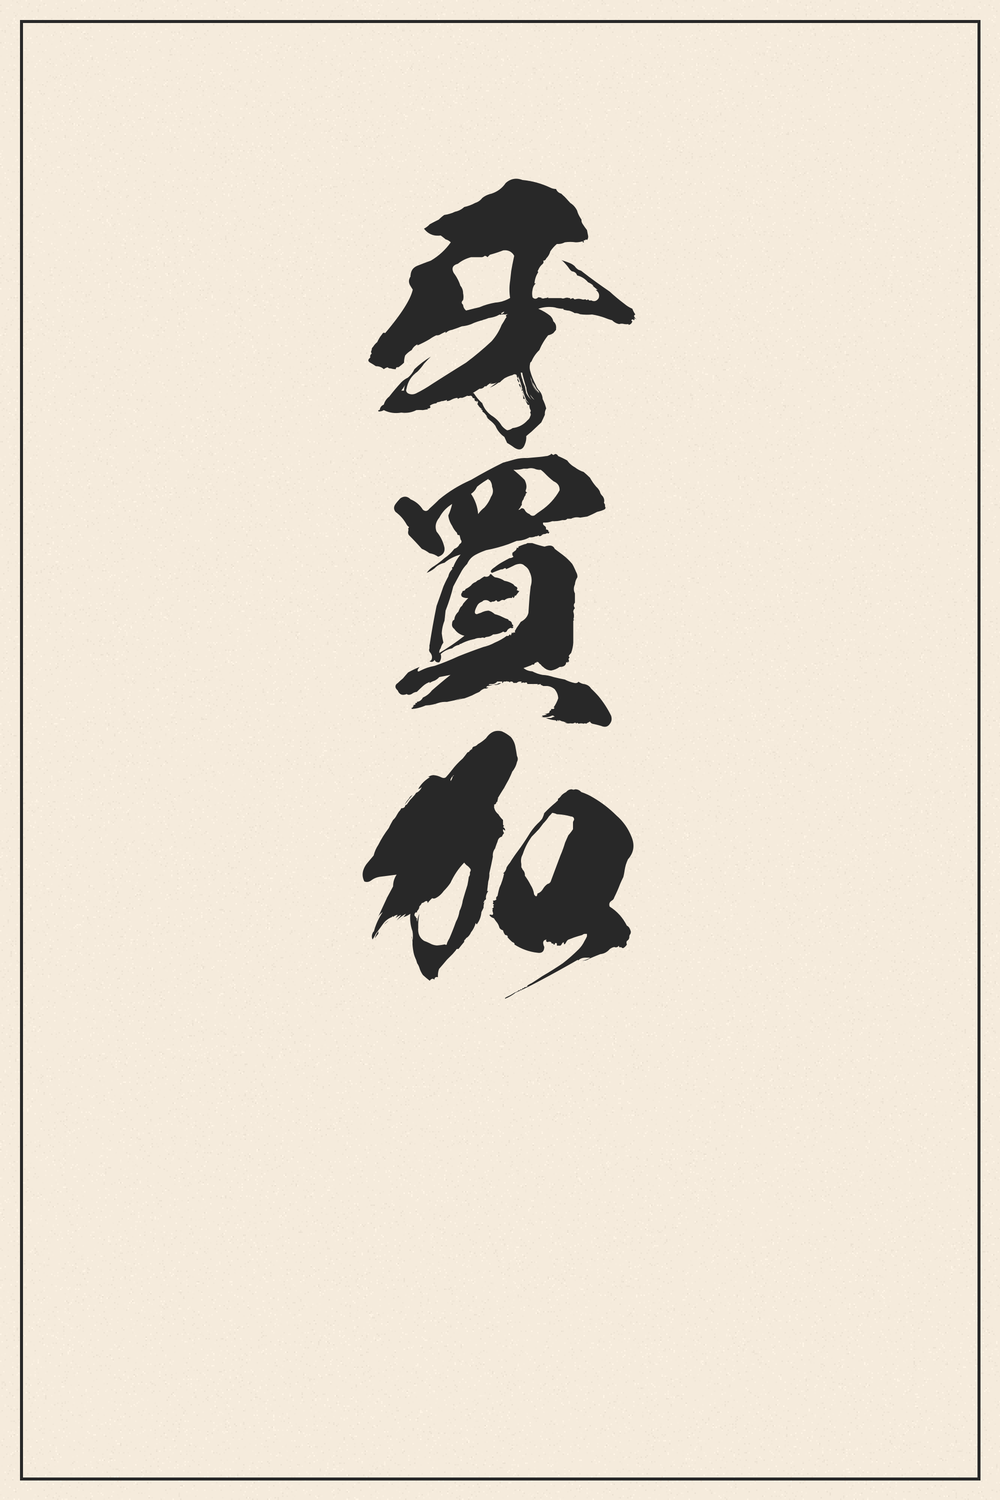 牙買加